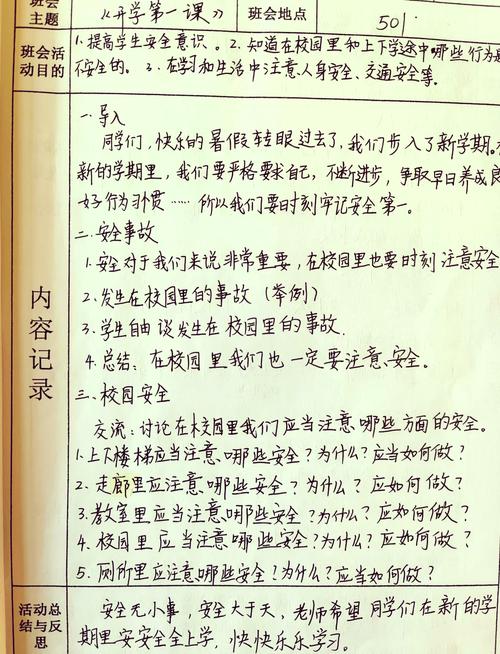 班会主题 《开学第一课》 班会地点 501
班会活动目的 1.提高学生安全意识。2.知道在校园里和上下学途中哪些行为是
不安全的。3.在学习和生活中注意人身安全、交通安全等。
内容记录
一.导入
同学们,快乐的暑假转眼过去了,我们步入了新学期。在
新的学期里,我们要严格要求自己,不断进步,争取早日养成良
好行为习惯……所以我们要时刻牢记安全第一。
二.安全事故
1.安全对于我们来说非常重要,在校园里也要时刻注意安全
2.发生在校园里的事故(举例)
3.学生自由谈发生在校园里的事故.
4.总结:在校园里我们也一定要注意安全。
三.校园安全
交流:讨论在校园里我们应当注意哪些方面的安全。
1.上下楼梯应当注意哪些安全?为什么?应当如何做?
2.走廊里应注意哪些安全?为什么?应如何做?
3.教室里应当注意哪些安全?为什么?应如何做?
4.校园里应当注意哪些安全?为什么?应如何做?
5.厕所里应注意哪些安全?为什么?应当如何做?
活动总结与反思 安全无小事,安全大于天,老师希望同学们在新的学
期里安安全全上学,快快乐乐学习。